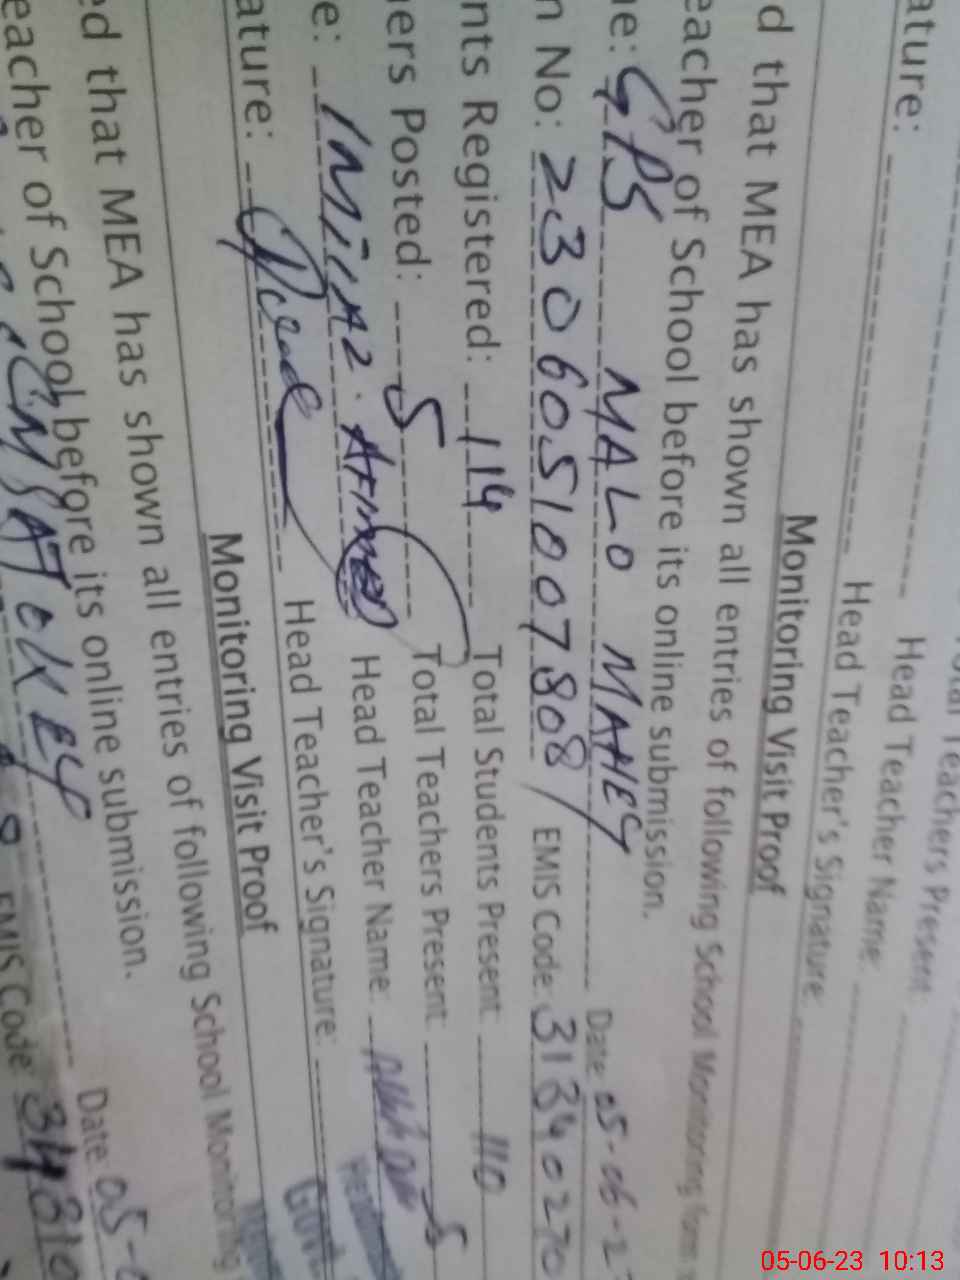 Teachers Present
ature: Head Teacher Name:
Head Teacher's Signature:
Monitoring Visit Proof
d that MEA has shown all entries of following School Monitoring form
eacher of School before its online submission.
Date: 05-06-2
e: GPS MALO MAHEY
n No: 2306051007808 EMIS Code: 31340270
nts Registered: 114 Total Students Present 110
ers Posted: 5 Total Teachers Present 5
e: IMTIAZ Head Teacher Name:
ature: Head Teacher's Signature:
Monitoring Visit Proof
ed that MEA has shown all entries of following School Monitoring
eacher of School before its online submission.
Date: 05-
EMIS Code:
05-06-23 10:13